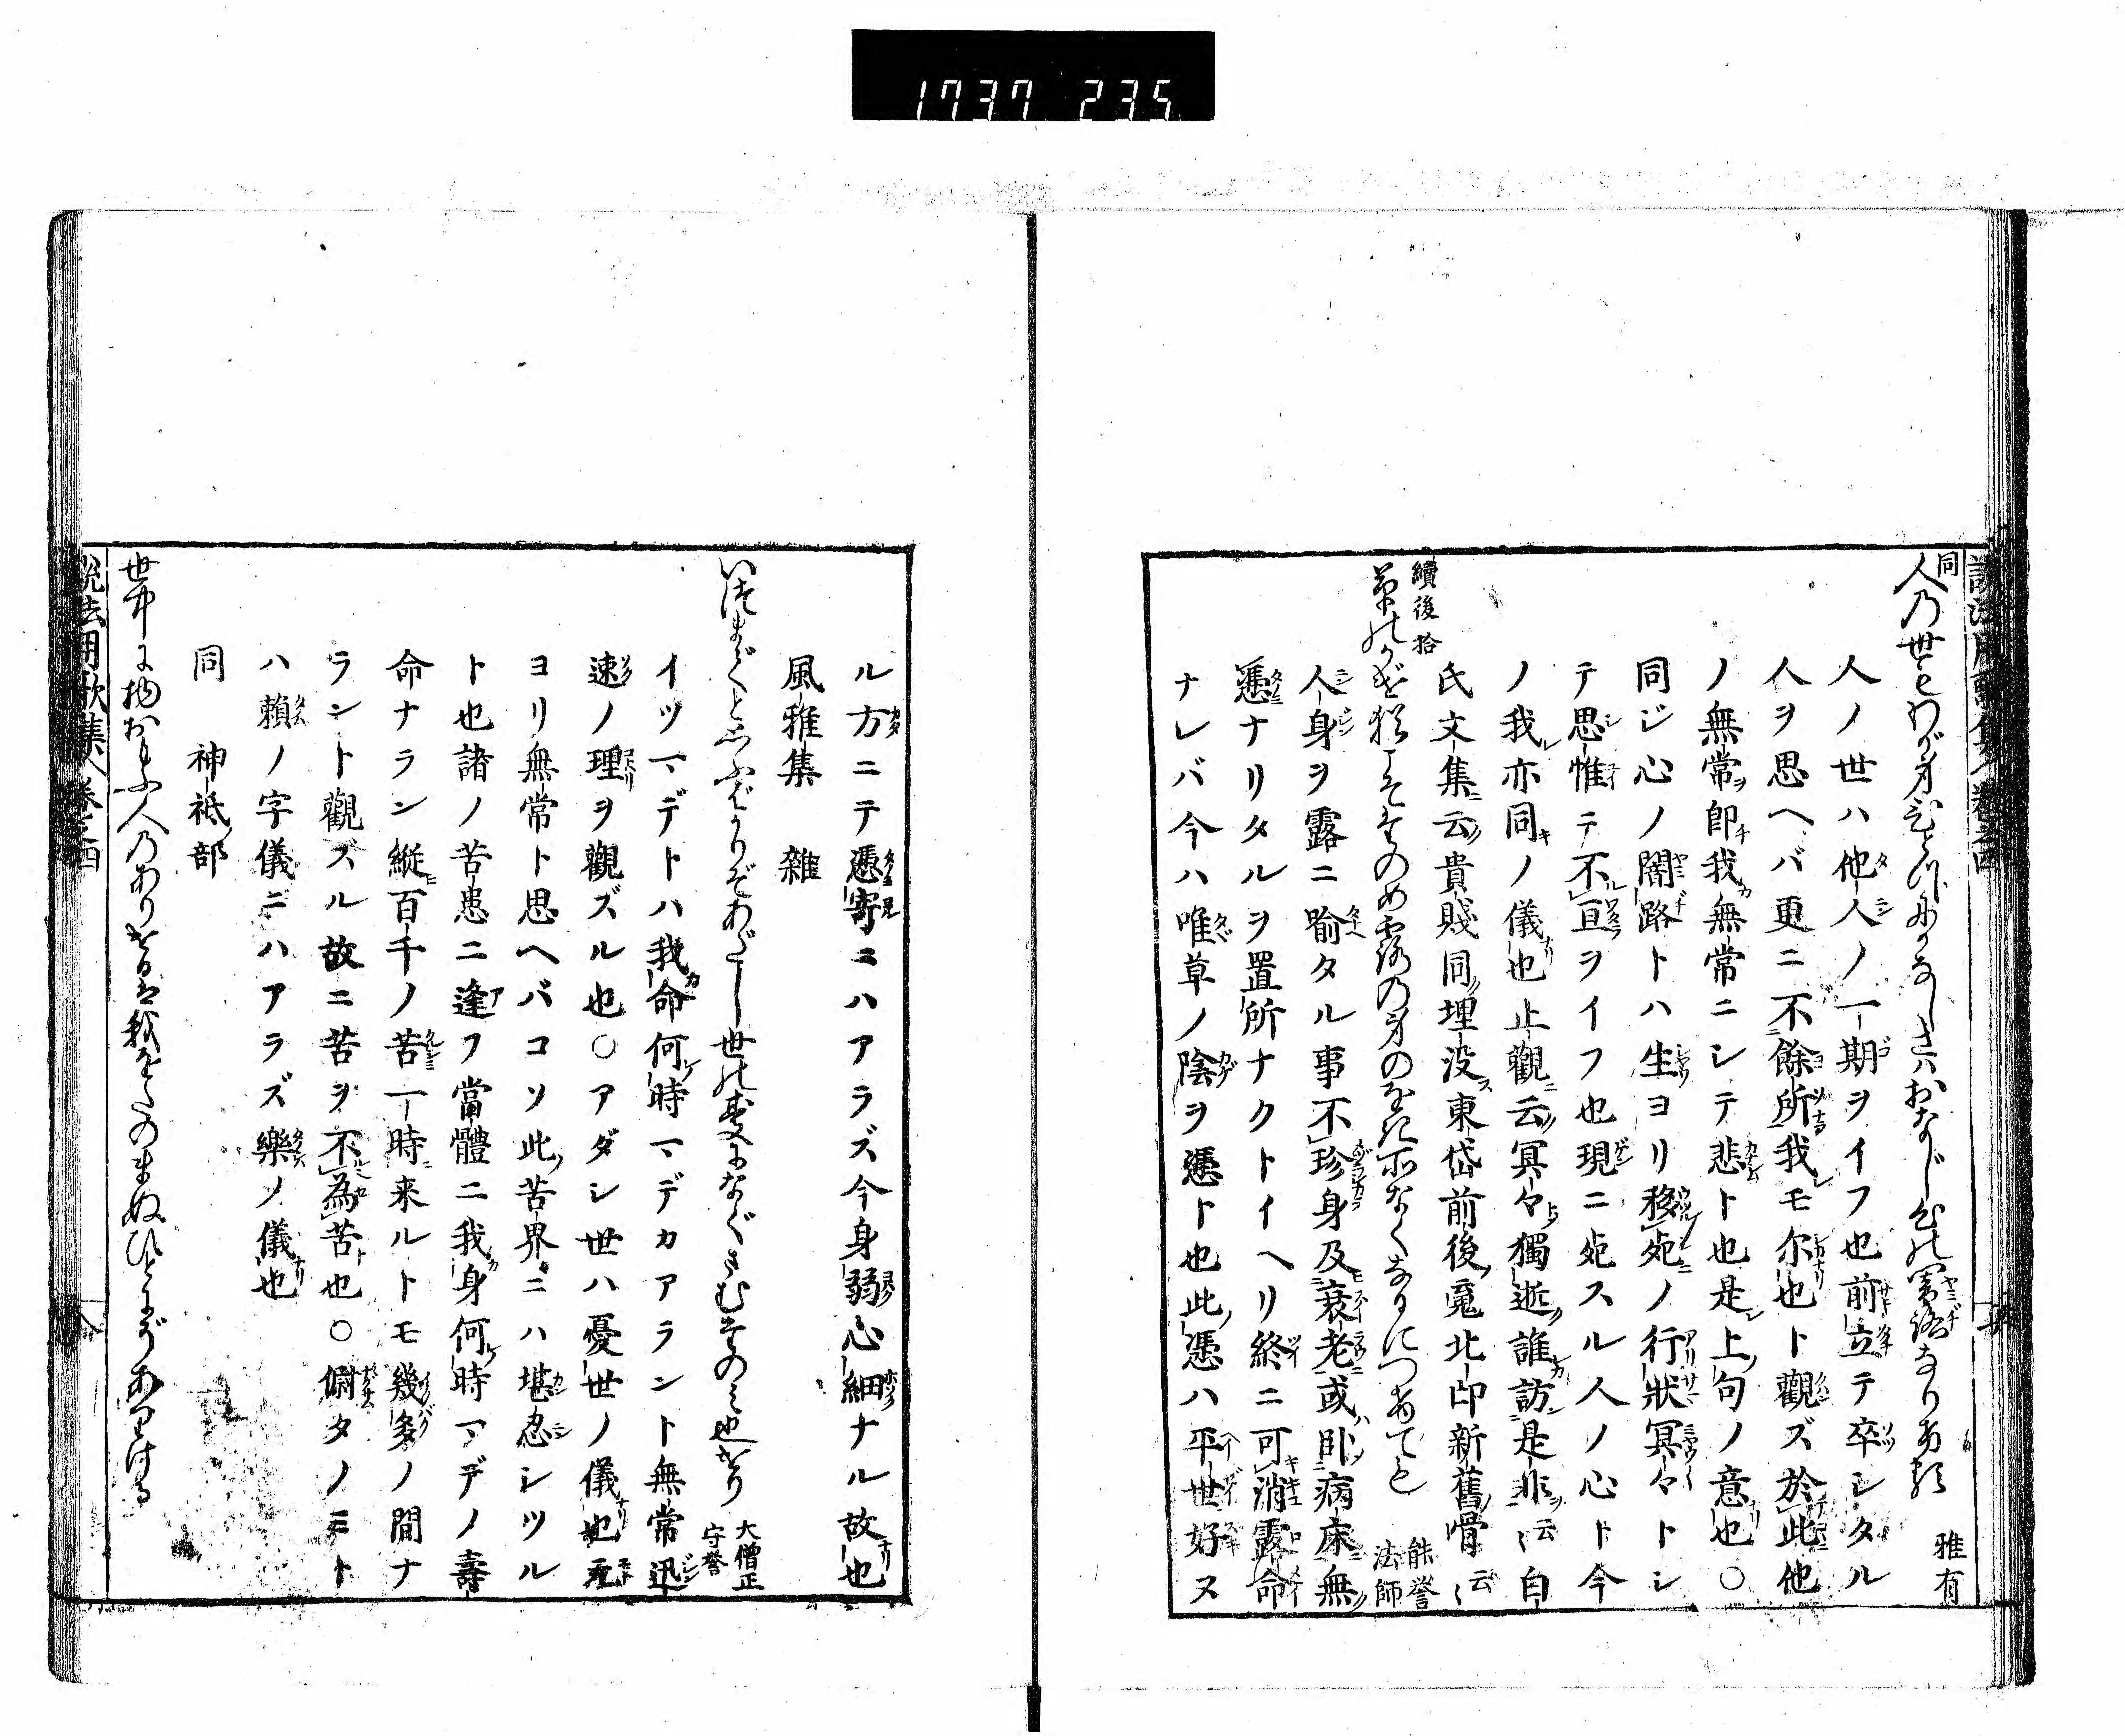 1737 235
説法用歌集 卷之四
同
人の世もわが身もとにかなしきはおなじ心の闇路なりけり 雅有
人ノ世ハ他人ノ一期ヲイフ也前立テ卒シタル
人ヲ思ヘバ更ニ不餘所我モ尓也ト觀ズ於此他
ノ無常即我無常ニシテ悲ト也是上句ノ意也○
同ジ心ノ闇路トハ生ヨリ移死ノ行狀冥々トシ
テ思惟テ不亘ヲイフ也現ニ死スル人ノ心ト今
ノ我亦同ノ儀也止觀云冥々獨逝誰訪是非云〻白
氏文集云貴賤同埋没東岱前後冤北印新舊骨云〻
續後拾
草のかげ猶たのめ露の身のをき所なくなるにつけても 能誉法師
人身ヲ露ニ喩タル事不珍身及衰老或臥病床無
憑ナリタルヲ置所ナクトイヘリ終ニ可消露命
ナレバ今ハ唯草ノ陰ヲ憑ト也此憑ハ平世好ス
ル方ニテ憑寄ヿハアラズ今身弱心細ナル故也
風雅集 雜
いつまでと思ふばかりぞあだし世の憂になぐさむたのみ也けり 大僧正守誉
イツマデトハ我命何時マデカアラント無常迅
速ノ理ヲ觀ズル也○アダシ世ハ憂世ノ儀也元
ヨリ無常ト思ヘバコソ此苦界ニハ堪忍シツル
ト也諸ノ苦患ニ逢フ當體ニ我身何時マデノ壽
命ナラン縱百千ノ苦一時来ルトモ幾多ノ間ナ
ラント觀ズル故ニ苦ヲ不為苦也○慰タノミト
ハ頼ノ字儀ニハアラズ樂ノ儀也
同 神祇部
世中に物おもふ人のありといふは我をたのまぬひとにぞありける
説法用歌集 卷之四 八